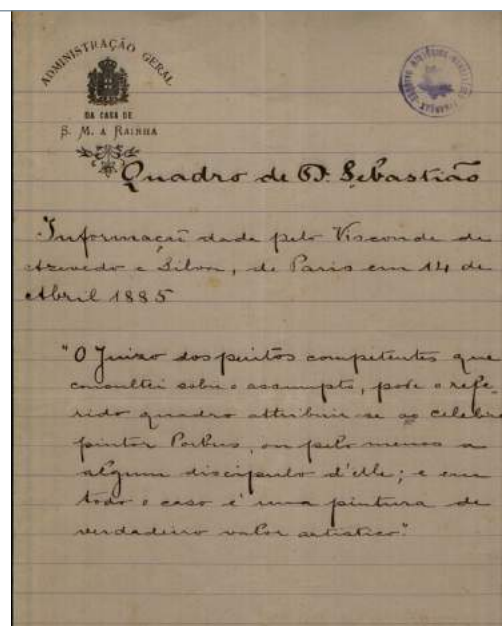 ADMINISTRAÇÃO GERAL
DA CASA DE
S. M. A RAINHA
Quadro de D. Sebastião
Informação dada pelo Visconde de
Azevedo e Silva, de Paris em 14 de
Abril 1885
"O Juizo dos peritos competentes que
consultei sobre o assumpto, pode o refe-
rido quadro attribuir-se ao celebre
pintor Porbus, ou pelo menos a
algum discipulo d'elle; e em
todo o caso é uma pintura de
verdadeiro valor artistico."